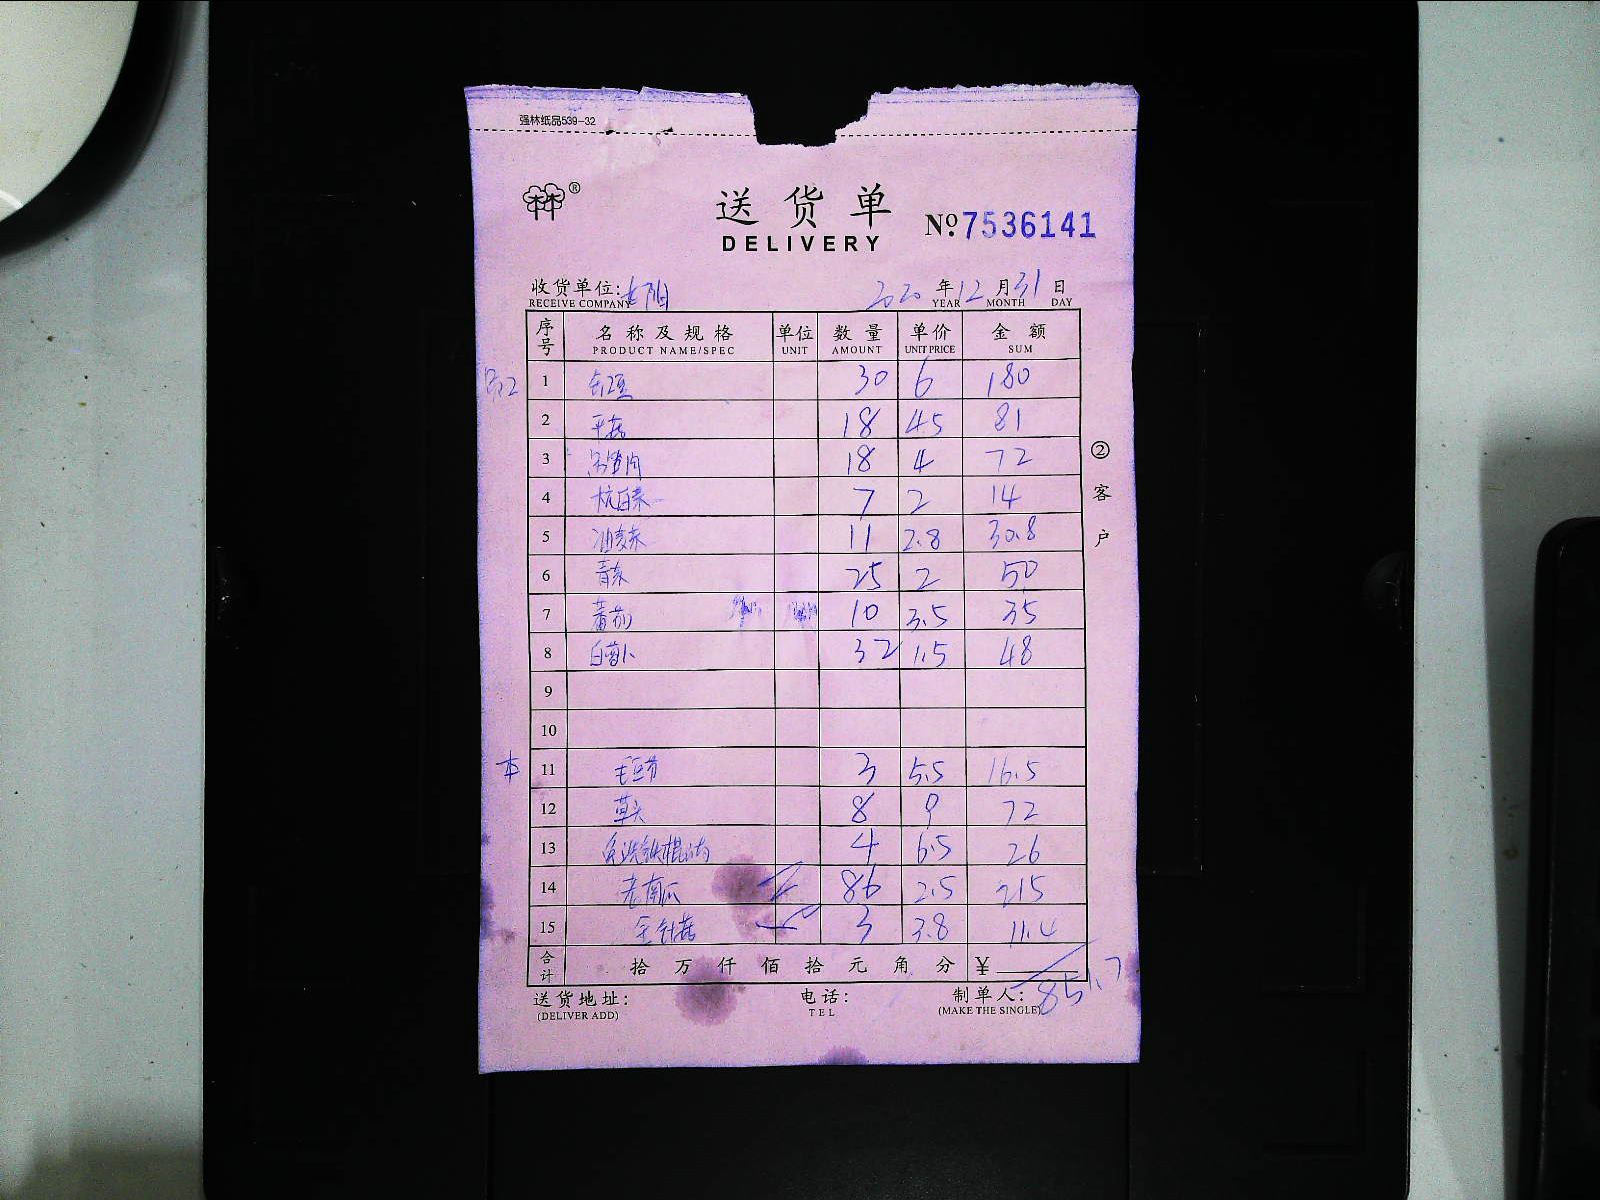 强林纸品539-32
林林®
送货单
DELIVERY
№7536141
收货单位:
RECEIVE COMPANY
2020年12月31日
YEAR MONTH DAY
序号 名称及规格 单位 数量 单价 金额
PRODUCT NAME/SPEC UNIT AMOUNT UNIT PRICE SUM
1 30 6 180
2 平菇 18 45 81
3 18 4 72
4 杭白菜 7 2 14
5 油麦菜 11 2.8 30.8
6 青菜 25 2 50
7 蕃茄 10 3.5 35
8 白萝卜 32 1.5 48
9
10
本 11 毛豆节 3 5.5 16.5
12 草头 8 9 72
13 4 6.5 26
14 老南瓜 86 2.5 215
15 金针菇 3 3.8 11.4
合计 拾万仟佰拾元角分 ¥ 851.7
送货地址: 电话: 制单人:
(DELIVER ADD) TEL (MAKE THE SINGLE)
②客户